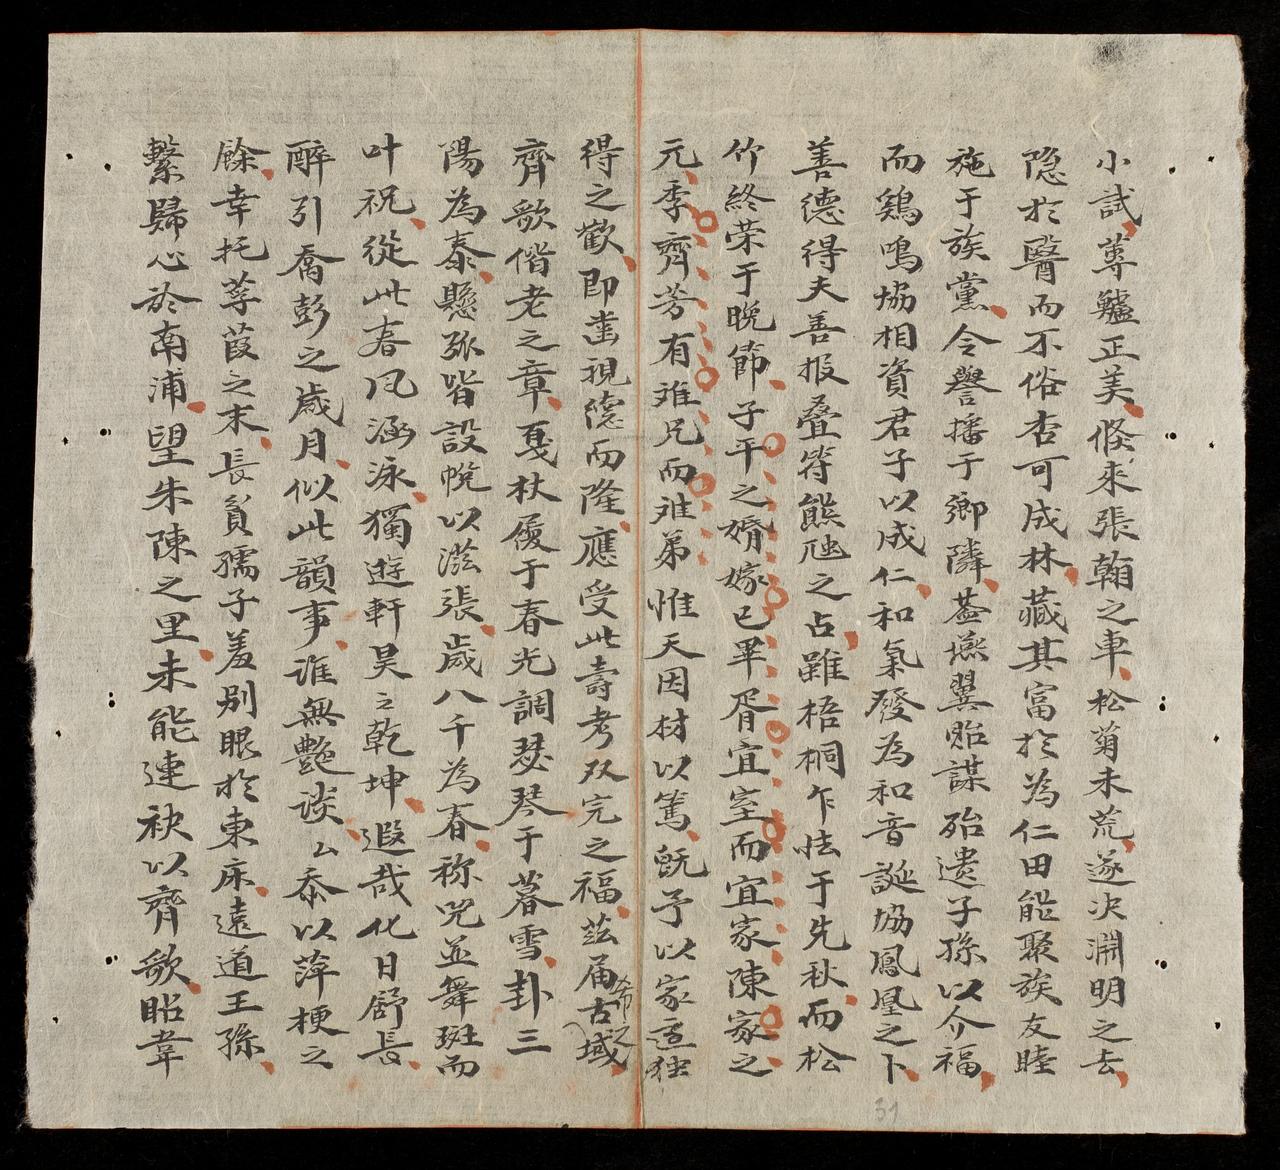 小試蓴鱸正美倏來張翰之車松菊未荒遂决淵明之去
隐於醫而不俗杏可成林藏其富於為仁田能聚族友睦
施于族黨令譽播于鄉隣葢燕翼貽謀殆遗子孫以介福
而鷄鳴協相資君子以成仁和氣發為和音誕協鳳凰之卜
善德得夫善报叠符熊虺之占雖梧桐乍怯于先秋而松
竹終荣于晚節子平之婚嫁已畢胥宜室而宜家陳家之
元季齊芳有难兄而难弟惟天因材以篤既予以家
得之歡即耋視德而隆應受此壽考双完之福茲届古希之域
齊歌偕老之章戛杖履于春光調瑟琴于暮雪卦三
陽為泰懸弧皆設帨以滋張歲八千為春称兕並舞斑而
叶祝從此春风涵泳獨遊軒昊之乾坤遐哉化日舒長
醉引喬彭之歲月似此韻事谁無艷谈厶忝以萍梗之
餘幸托莩葭之末長貧孺子羞别眼於東床遠道王孫
繋歸心於南浦望朱陳之里未能連袂以齊歌昭韋
31